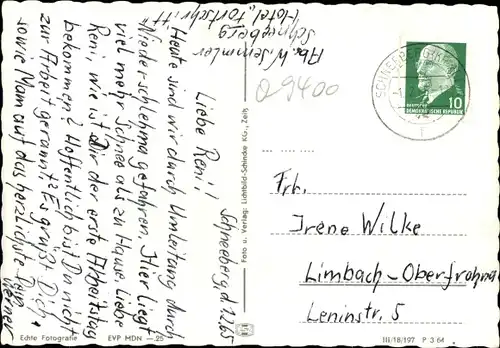 Abs. W. Semmler
Schneeberg
Hotel „Fortschritt"
O 9400
Schneeberg, d. 1.2.65
Liebe Reni!
Heute sind wir durch Umleitung durch
Niederschlema gefahren. Hier liegt
viel mehr Schnee als zu Hause. Liebe
Reni, wie ist Dir der erste Arbeitstag
bekommen? Hoffentlich bist Du nicht
zur Arbeit gerannt? Es grüßt Dich,
sowie Mam auf das herzlichste Dein
Werner
Echte Fotografie
EVP MDN –.25
Foto u. Verlag: Lichtbild-Schincke KG., Zeitz
SCHNEEBERG
10
DEUTSCHE
DEMOKRATISCHE REPUBLIK
Frl.
Irene Wilke
Limbach-Oberfrohna
Leninstr. 5
III/18/197 P 3 64